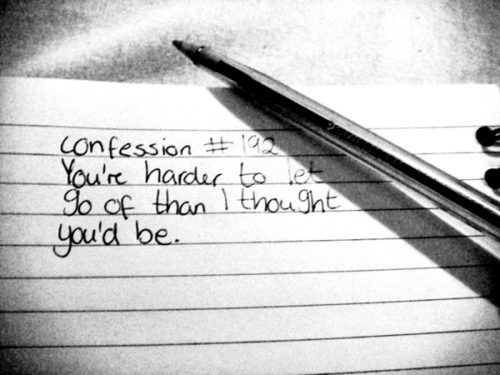 confession #192
You're harder to let
go of than I thought
you'd be.